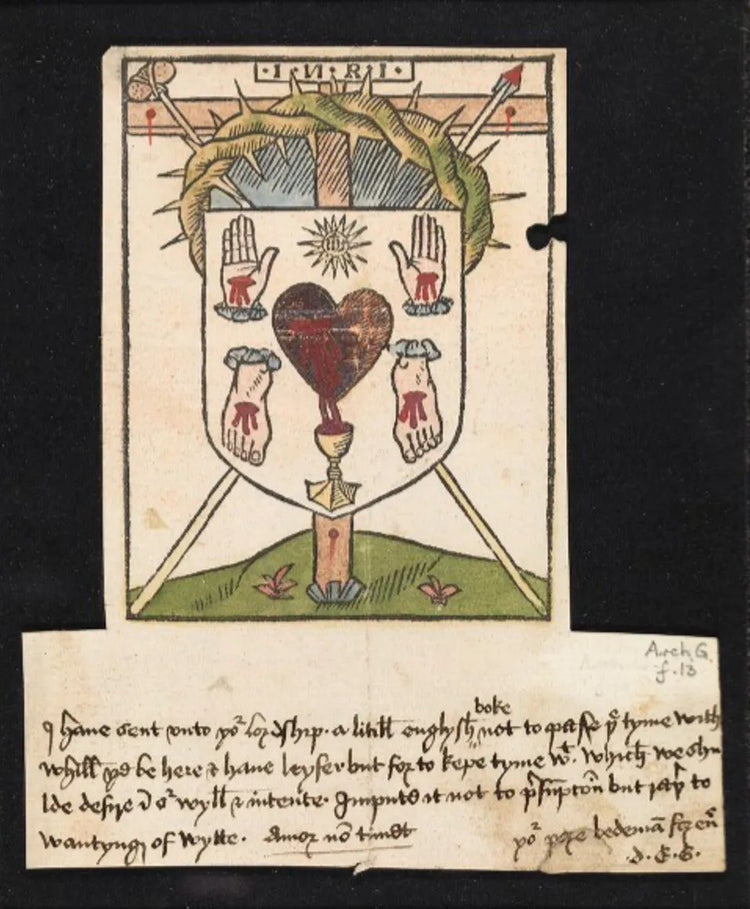 ·I·N·R·I·
Arch. G.
f. 13
boke
I haue sent vnto yor lordship · a litill english not to passe ye tyme with
whill yo be here & haue leyser but for to kepe tyme wt. which we shu
lde desyre i or wyll & intente. Imputd it not to but to
wantyng of wytte. Amor nō timet
yor pore bedemā for eū
.d.E.G.